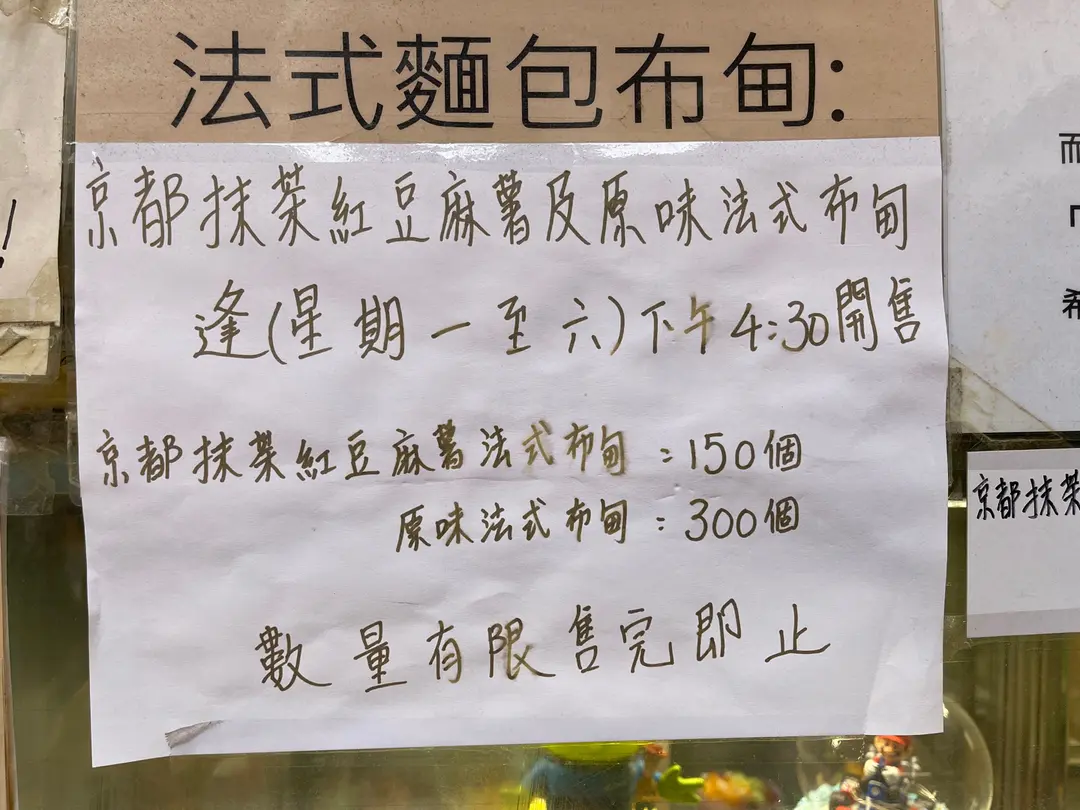 法式麵包布甸:
京都抹茶紅豆麻薯及原味法式布甸
逢(星期一至六)下午4:30開售
京都抹茶紅豆麻薯法式布甸:150個
原味法式布甸:300個
數量有限售完即止
!
而
希
京都抹茶